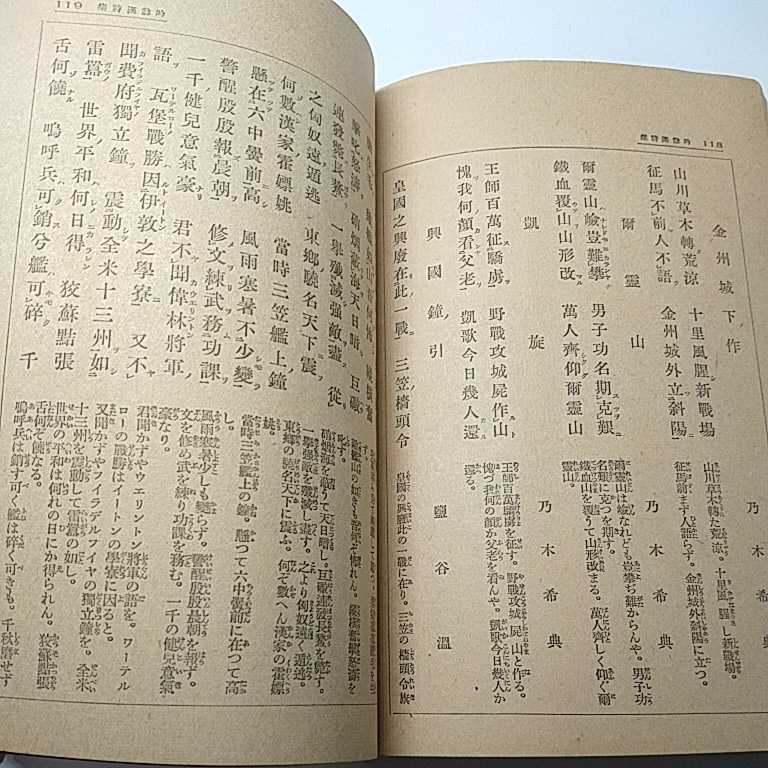 118
金州城下作 乃木希典
山川草木轉荒涼 十里風腥新戰場
征馬不前人不語 金州城外立斜陽
山川草木轉た荒涼。十里風腥し新戰場。
征馬前まず人語らず。金州城外斜陽に立つ。
爾靈山 乃木希典
爾靈山嶮豈難攀 男子功名期克艱
鐵血覆山山形改 萬人齊仰爾靈山
爾靈山は嶮なれども豈攀ぢ難からんや。男子功
名艱に克つを期す。
鐵血山を覆うて山形改まる。萬人齊しく仰ぐ爾
靈山。
凱旋 乃木希典
王師百萬征驕虜 野戰攻城屍作山
愧我何顏看父老 凱歌今日幾人還
王師百萬驕虜を征す。野戰攻城屍山と作る。
愧づ我何の顏か父老を看んや。凱歌今日幾人か
還る。
興國鐘引 鹽谷溫
皇國之興廢在此一戰 三笠檣頭令
皇國の興廢は此の一戰に在り。三笠の檣頭令旗
119
之匈奴遠遁逃 東鄕驍名天下震
何數漢家霍嫖姚 當時三笠艦上鐘
懸在六中黌前高 風雨寒暑不少變
警醒殷殷報晨朝 修文練武務功課
一千健兒意氣豪 君不聞偉林將軍
語 瓦堡戰勝因伊敦之學寮 又不
聞費府獨立鐘 震動全米十三州如
雷囂 世界平和何日得 狡蘇點張
舌何饒 嗚呼兵可銷兮艦可碎 千
一擧殲滅し强敵を盡す。之より匈奴遠く遁逃。
東鄕の驍名天下に震ふ。何ぞ數へん漢家の霍嫖
姚。
當時三笠艦上の鐘。懸つて六中黌前に在つて高
し。
風雨寒暑少しも變らず。警醒殷殷晨朝を報ず。
文を修め武を練り功課を務む。一千の健兒意氣
豪なり。
君聞かずやウエリントン將軍の語を。ワーテル
ローの戰勝はイートンの學寮に因ると。
又聞かずやフイラデルフイヤの獨立鐘を。全米
十三州を震動して雷囂の如し。
世界の平和は何れの日にか得られん。狡蘇點張
舌何ぞ饒なる。
嗚呼兵は銷す可く艦は碎く可きも。千秋磨せず